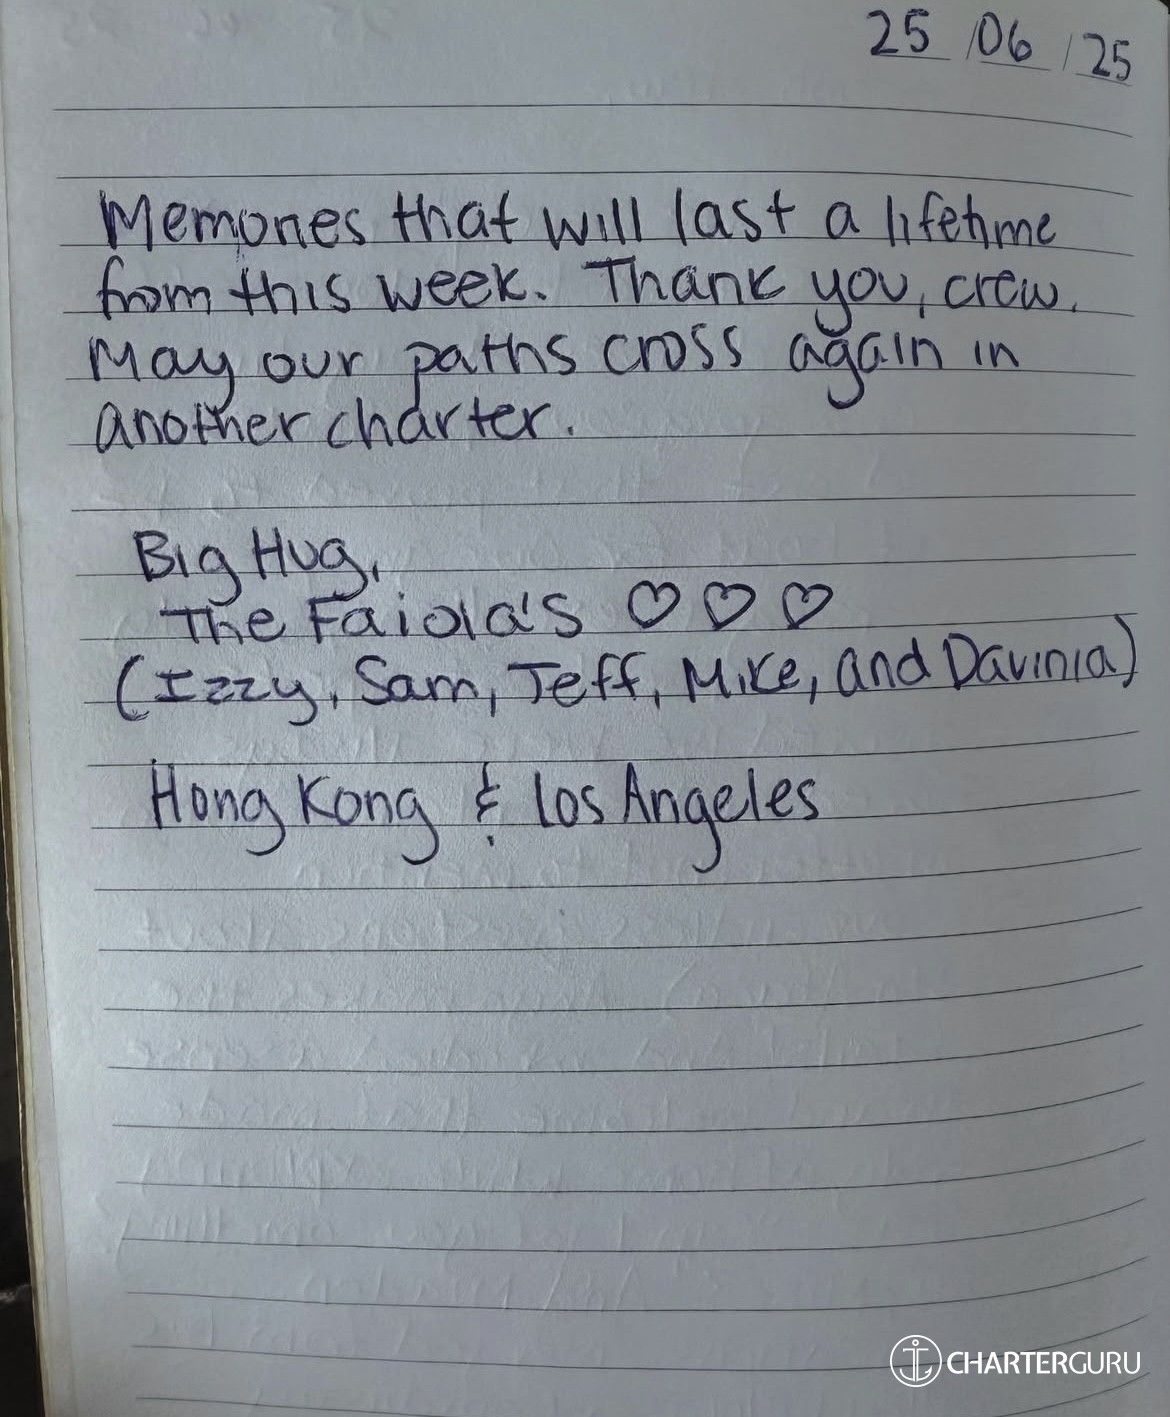 25/06/25
Memories that will last a lifetime
from this week. Thank you, crew.
May our paths cross again in
another charter.
Big Hug,
The Faiola's ♡ ♡ ♡
(Izzy, Sam, Jeff, Mike, and Davinia)
Hong Kong & Los Angeles
CHARTERGURU